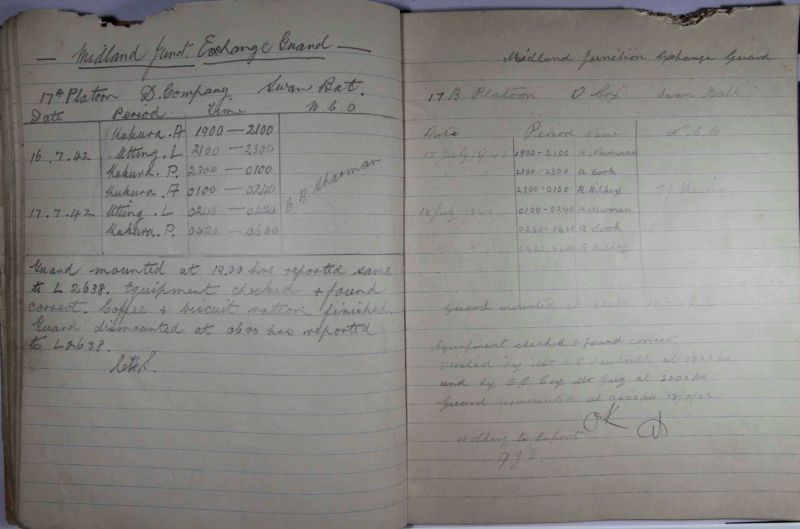 Midland Junct. Exchange Guard
17th Platoon D. Company Swan Bat.
Date Period Time N.C.O
Kukura. A 1900 — 2100
16.7.42 Utting. L 2100 — 2300
Kukura. P. 2300 — 0100
Kukura. A 0100 — 0240
17.7.42 Utting. L 0240 — 0420
Kukura. P. 0420 — 0600
Guard mounted at 19.00 hrs reported same
to L 2638. Equipment checked + found
correct. Coffee + biscuit ration finished.
Guard dismounted at 0600 hrs reported
to L2638.
Midland Junction Exchange Guard
17 B Platoon D Coy" Swan Batt"
Date Period Name N.C.O
17 July 1942 1900 - 2100 H Newman
2100 - 2300 A Cook
2300 - 0100 R.
18 July 1942 0100 - 0240 H Newman
0240 - 0420 A Cook
0420 - 0600 R
Guard mounted at 1900 hrs
Equipment checked & found correct
Visited by Mr at 1920 hrs
and by O.C. Coy Mr Guy at 2000 hrs
Guard dismounted at 0600 hrs 18/7/42
OK
Nothing to Report
F.J.S.